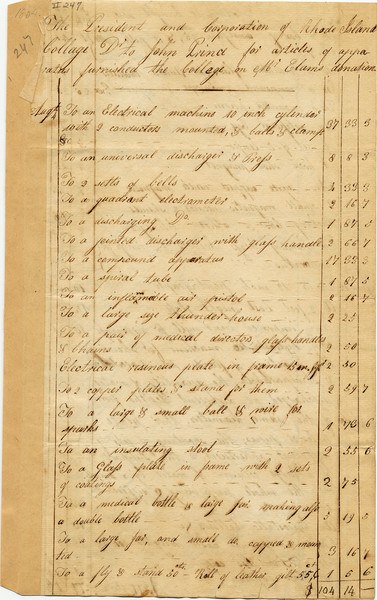 II 247
247
The President and Corporation of Rhode Island
College Dr to John Prince for articles of appa
ratus furnished the College on Mr Elams donation
Augt To an Electrical machine 10 inch cylender
with 2 conductors mounted, & balls, & clamps
&c 37 33 3
To an universal discharger & Press 8 8 3
To 2 setts of bells 3 33 3
To a quadrant electrometer 2 16 7
To a discharging Do. 1 87 5
To a jointed discharger with glass handle 2 66 7
To a compound apparatus 17 33 3
To a spiral tube 1 87 5
To an inflamable air pistol 2 16 7
To a large size thunder-house 2 25
To a pair of medical directors, glass-handles
& chains 2 50
Electrical resinous plate in frame 2 50
To 2 copper plates & stand for them 2 59 7
To a large & small ball & wire for
sparks 1 6
To an insulating stool 2 55 6
To a Glass plate in frame with 2 sets
of coatings 2 75
To a medical bottle & large jar making also
a double bottle 3 19 5
To a large jar, and small do, copped & moun
ted 3 16 6
To a fly & stand 50cts Roll of leather gilt 1 5 6
$ 104 14 —